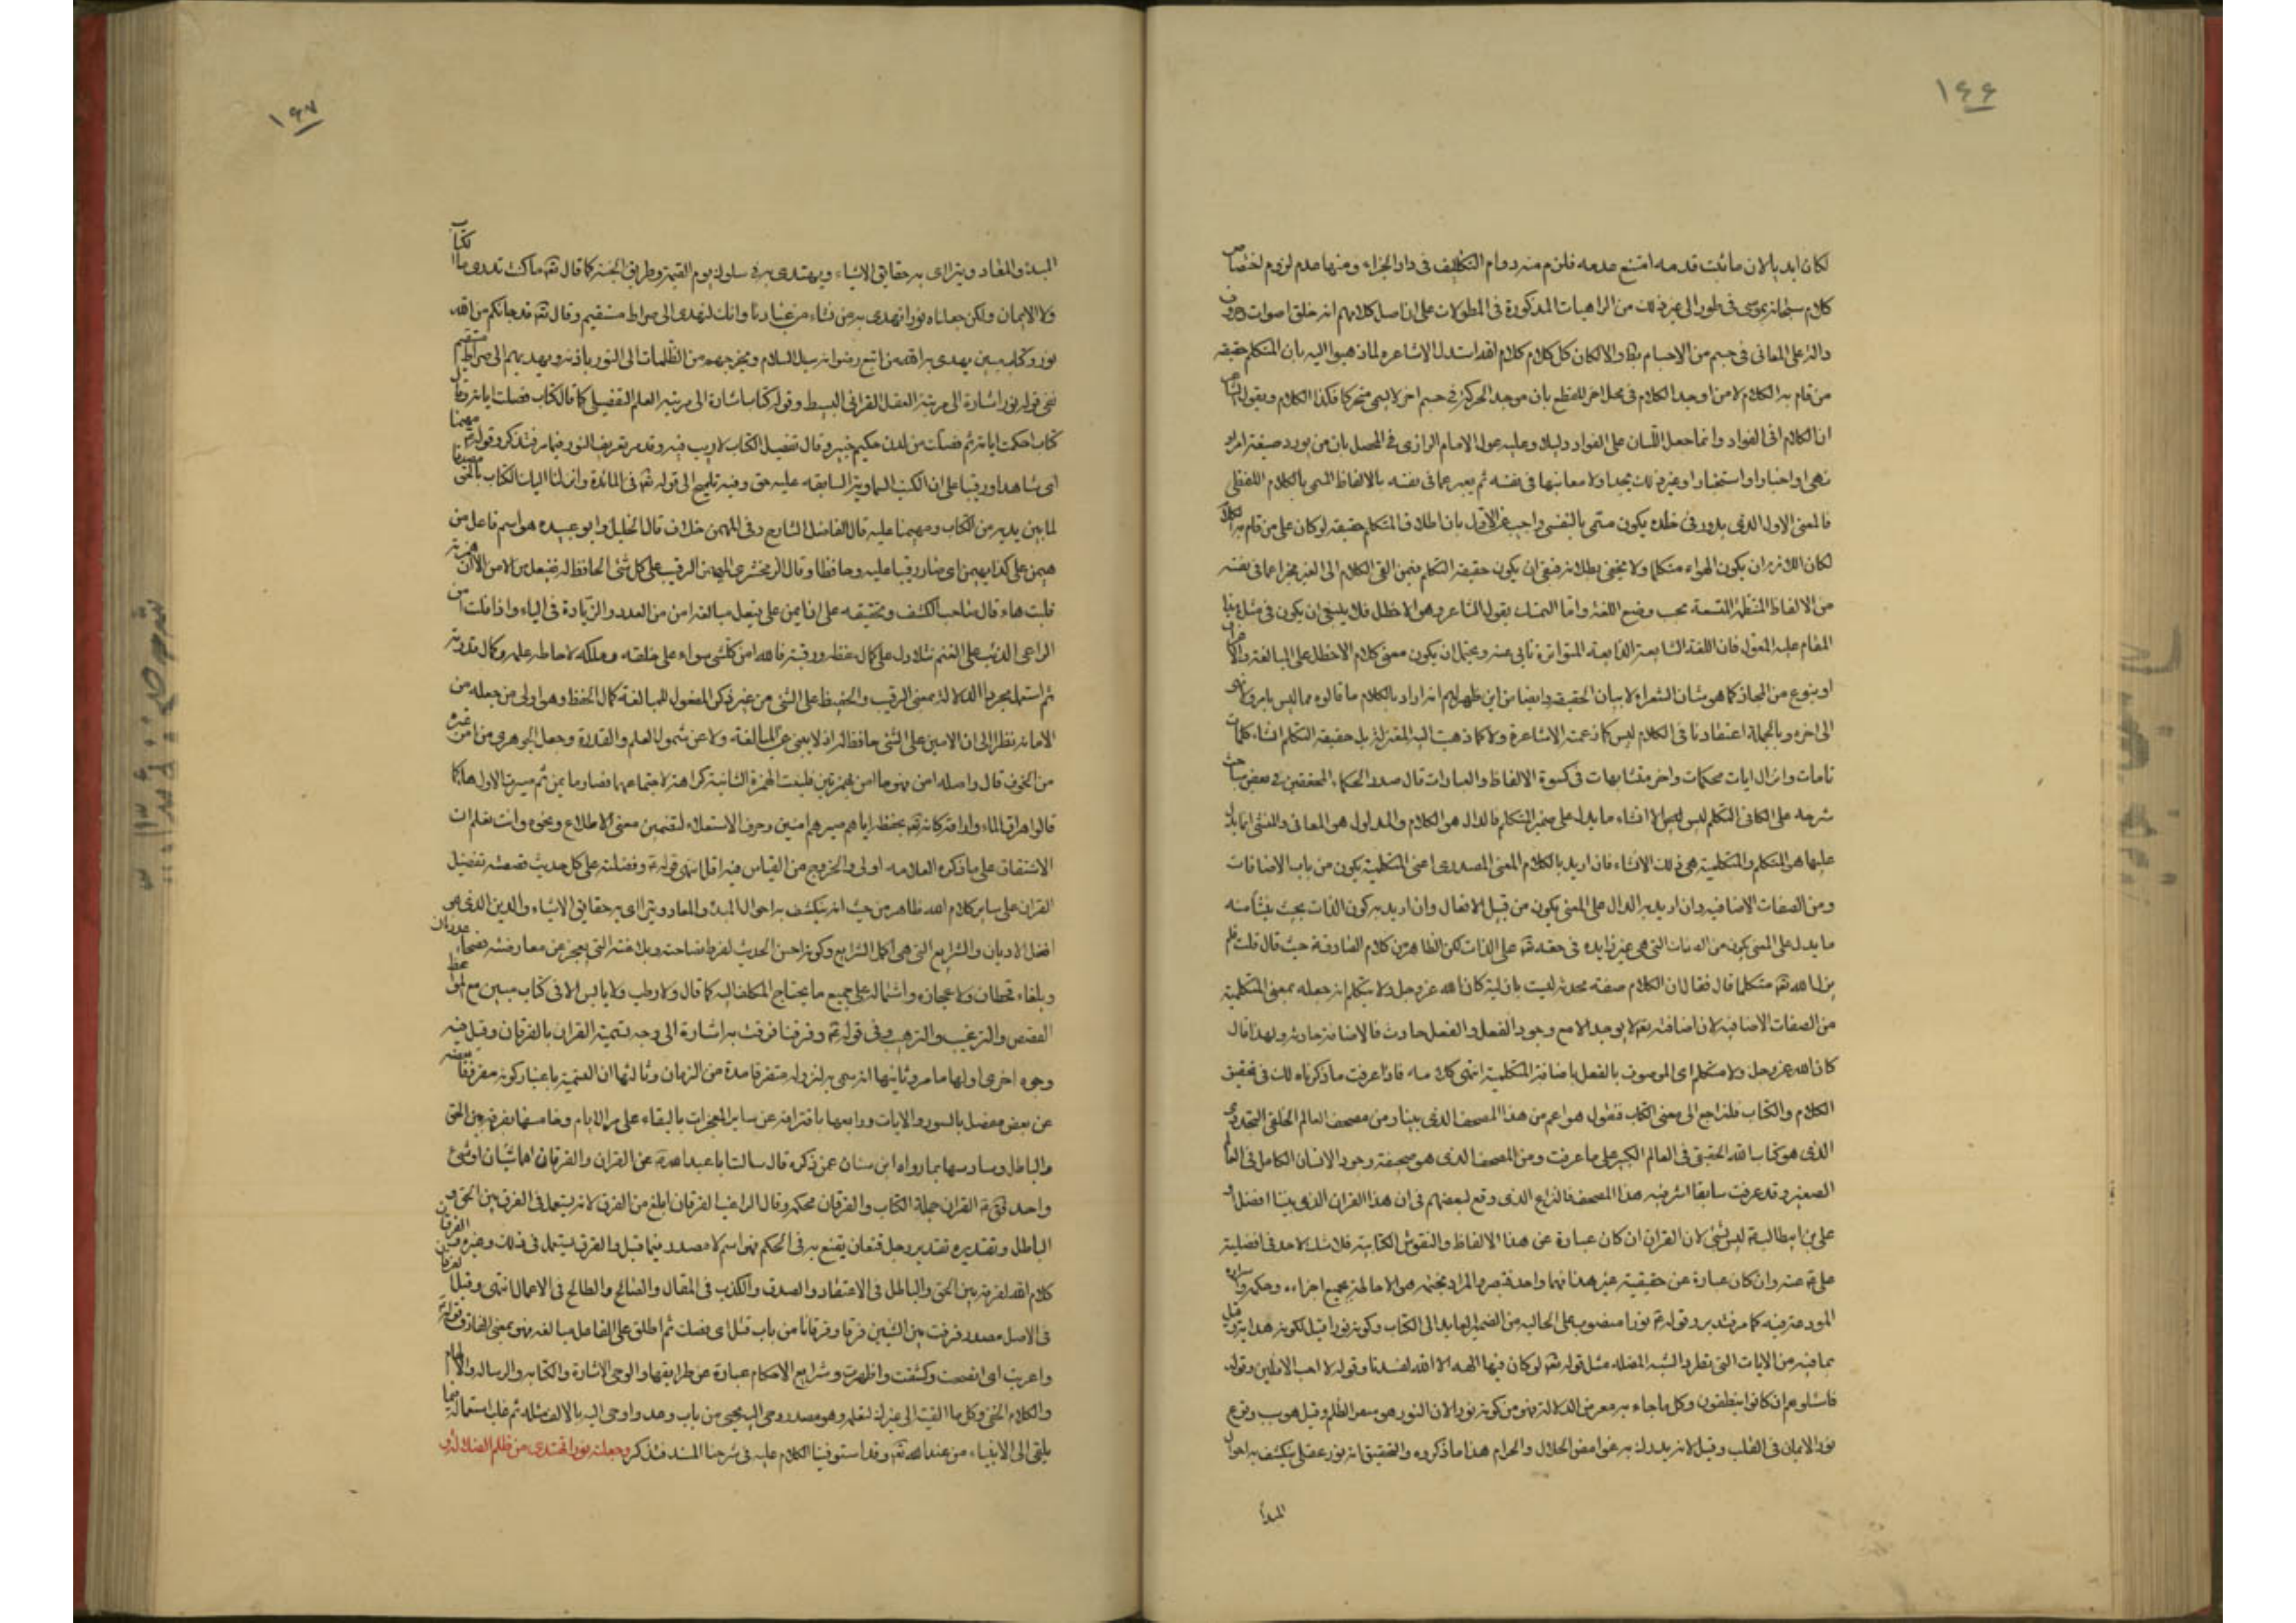 ١٤٤
لكان ابديا لان ما ثبت قدمه امتنع عدمه فلزم منه دوام التكليف فى دار الجزاء ومنها عدم لزوم اختصاص
كلام سبحانه بموسى فى طور الى غير ذلك من المذكورة فى المطولات على ان اصل كلامهم انه خلق اصوات وحروف
دالة على المعانى فى جسم من الاجسام والا لكان كل كلام كلام الله استدل الاشاعرة لما ذهبوا اليه بان المتكلم حقيقة
من قام به الكلام لا من اوجد الكلام فى محل اخر للقطع بان موجد الحركة فى جسم اخر لا يسمى متحركا فكذا الكلام وبقول الشاعر
ان الكلام لفى الفواد وانما جعل اللسان على الفواد دليلا وعليه عول الامام الرازى فى المحصل بان من يورد صيغة امر او
نهى او اخبار او استخبار او غير ذلك يجد اولا معانيها فى نفسه ثم يعبر عما فى نفسه بالالفاظ المسمى بالكلام اللفظى
فالمعنى الاول الذى يدور فى خلده يكون مسمى بالنفسى واجيب عن الاول بان اطلاق المتكلم حقيقة لو كان على من قام به الكلام
لكان اللازم ان يكون الهواء متكلما ولا يخفى بطلانه فبقى ان يكون حقيقة المتكلم فيمن القى الكلام الى الغير مخبرا عما فى نفسه
من الالفاظ المنتظمة بحسب وضع اللغة واما التمسك بقول الشاعر وهو الاخطل فلا ينبغى ان يكون فى مثل هذا
المقام عليه المعول فان اللغة الشايعة الذايعة المتواترة تابى عنه ويحتمل ان يكون معنى كلام الاخطل على المبالغة والاغراق
او بنوع من المجاز كما هو شان الشعراء لا بيان الحقيقة وايضا من اين ظهر لهم انه اراد بالكلام ما قالوه مما ليس بامر ولا نهى
الى اخره وبالجملة اعتقادنا فى الكلام ليس كما زعمته الاشاعرة ولا كما ذهبت اليه المعتزلة بل حقيقة التكلم انشاء كلمات
تامات وانزال ايات محكمات واخر متشابهات فى كسوة الالفاظ والعبارات قال صدر الحكماء المحققين فى بعض مباحث
شرحه على الكافى التكلم ليس الا انشاء ما يدل على ضمير المتكلم فالدال هو الكلام والمدلول هو المعانى والمنشئ لما يدل
عليها هو المتكلم والمتكلمية هى ذلك الانشاء فان اريد بالكلام المعنى المصدرى اعنى المتكلمية يكون من باب الاضافات
ومن الصفات الاضافية وان اريد به الدال على المعنى يكون من قبيل الافعال وان اريد به كون الذات بحيث ينشأ منه
ما يدل على المعنى يكون من الصفات التى هى غير زايدة فى حقه تعالى على الذات لكن الظاهر من كلام الصادق ع حيث قال قلت فلم
يزل الله تعالى متكلما قال فقال ان الكلام صفة محدثة ليست بازلية كان الله عز وجل ولا متكلم انه جعله بمعنى المتكلمية
من الصفات الاضافية لان اضافته تعالى لا يوجد الا مع وجود الفعل والفعل حادث فالاضافة حادثة ولهذا قال
كان الله عز وجل ولا متكلم اى الموصوف بالفعل باضافة المتكلمية انتهى كلامه فاذا عرفت ما ذكرناه لك فى تحقيق
الكلام والكتاب فلنراجع الى معنى الكتاب فنقول هو اعم من هذا المصحف الذى بيننا ومن مصحف العالم الخلقى التجددى
الذى هو كتاب الله الحقيقى فى العالم الكبير على ما عرفت ومن المصحف الذى هو صحيفة وجود الانسان الكامل فى العالم
الصغير وقد عرفت سابقا هذا المصحف فالنزاع الذى وقع لبعضهم فى ان هذا القران الذى بيننا افضل او
على بن ابيطالب ع ليس بشئ لان القران ان كان عبارة عن هذا الالفاظ والنقوش الكتابية فلا شك لاحد فى افضلية
على ع منه وان كان عبارة عن حقيقية غير هذا فهما واحد فتبصر المراد بختمه هو الاحاطة بجميع اجزاءه وحكمه واسراره
المودعة فيه كما مر فتدبر وقوله ع نورا منصوب على الحالية من الضمير العايد الى الكتاب وكونه نورا قيل لكونه هداية وقيل
بما فيه من الايات التى تطرد الشبه المضلة مثل قوله تعالى لو كان فيهما الهة الا الله لفسدتا وقوله لا احب الافلين وقوله
فاسئلوهم ان كانوا ينطقون وكل ما جاء به معرض الدلالة فهو من كونه نورا لان النور هو منفر الظلم وقيل هو سبب وقوع
نور الايمان فى القلب وقيل لانه يدرك به غوامض الحلال والحرام هذا ما ذكروه والتحقيق انه نور عقلى ينكشف به احوال
المبدأ
١٤٧
المبدء والمعاد ويتراى به حقايق الاشياء ويهتدى به فى سلوك يوم القيمة وطريق الجنة كما قال تعالى ما كنت تدرى ما الكتاب
ولا الايمان ولكن جعلناه نورا نهدى به من نشاء من عبادنا وانك لتهدى الى صراط مستقيم وقال تعالى قد جائكم من الله
نور وكتاب مبين يهدى به الله من اتبع رضوانه سبل السلام ويخرجهم من الظلمات الى النور باذنه ويهديهم الى صراط مستقيم
ففى قوله نور اشارة الى مرتبة العقل القرانى البسيط وقوله كتاب اشارة الى مرتبة العلم التفصيلى كما قال كتاب فصلت اياته وقال
كتاب احكمت اياته ثم فصلت من لدن حكيم خبير وقال تفصيل الكتاب لا ريب فيه وقد مر تعريف النور فيما مر فتذكر وقوله ع مهيمنا
اى شاهدا ورقيبا على ان الكتب السماوية السابقة عليه حق وفيه تلميح الى قوله تعالى فى المائدة وانزلنا اليك الكتاب بالحق مصدقا
لما بين يديه من الكتاب ومهيمنا عليه قال الفاضل الشارح وفى المهيمن خلاف قال الخليل وابو عبيده هو اسم فاعل من
هيمن على كذا يهيمن اى صار رقيبا عليه وحافظا وقال الزمخشرى المهيمن الرقيب على كل شئ الحافظ له مفيعل من الامن الا ان همزته
قلبت هاء وقال صاحب الكشف وتحقيقه على ان ايمن على يفعل مبالغة امن من العدو والزيادة فى الياء واذا قلت امن
الراعى الذئب على الغنم مثلا دل على كمال حفظه ورقبته فالله امن كل شئ سواه على خلقه وملكه لاحاطة علمه وكمال قدرته
ثم استعمل مجرد الدلالة بمعنى الرقيب والحفيظ على الشئ من غير ذكر المفعول للمبالغة كمال الحفظ وهو اولى من جعله من
الامانة نظرا الى ان الامين على الشئ حافظ له اذ لا ينبئ عن المبالغة ولا عن شمول العلم والقدرة وجعل الجوهرى من امن غيره
من الخوف قال واصله امن فهو مأ امن بهمزتين فلينت الهمزة الثانية كراهة لاجتماعهما فصار مايمن ثم صيرت الاولى هاء كما
قالوا هراق الماء واراقه كانه تعالى بحفظه اياهم صيرهم امنين وحرف الاستعلاء لتضمين معنى الاطلاع ونحوه وانت تعلم ان
الاشتقاق على ما ذكره العلامة اولى والخروج من القياس فيه اقل انتهى قوله ع وفضلته على كل حديث قصصته تفضيل
القران على ساير كلام الله ظاهر من حيث انه ينكشف به احوال المبدء والمعاد ويتراى به حقايق الاشياء والدين الذى هو
افضل الاديان والشرايع التى هى اكمل الشرايع وكونه احسن الحديث لفرط فصاحته وبلاغته التى يعجز عن معارضته فصحاء عدنان
وبلغاء قحطان ولاعجازه واشتماله على جميع ما يحتاج المكلف اليه كما قال ولا رطب ولا يابس الا فى كتاب مبين مع المواعظ
القصص والترغيب والترهيب وفى قوله ع وفرقانا فرقت به اشارة الى وجه تسمية القران بالفرقان وقيل فيه
وجوه اخرى اولها ما مر وثانيها انه سمى به لنزوله متفرقا مدة من الزمان وثالثها ان التسمية باعتبار كونه مفرقا بعضه
عن بعض مفصل بالسور والايات ورابعها بافتراقه عن ساير المعجزات بالبقاء على مر الايام وخامسها بفرقه بين الحق
والباطل وسادسها بما رواه ابن سنان عمن ذكره قال سالت ابا عبد الله ع عن القران والفرقان اهما شيئان او شئ
واحد فقال ع القران جملة الكتاب والفرقان محكمه وقال الراغب الفرقان ابلغ من الفرق لانه يستعمل فى الفرق بين الحق و
الباطل وتقديره تقدير رجل قنعان يقنع به فى الحكم فهو اسم لا مصدر فيما قيل والفرق يستعمل فى ذلك وغيره والفرقان
كلام الله لفرقه بين الحق والباطل فى الاعتقاد والصدق والكذب فى المقال والصالح والطالح فى الاعمال انتهى وقيل الفرقان
فى الاصل مصدر فرقت بين الشيئين فرقا وفرقانا من باب قتل اى فصلت ثم اطلق على الفاعل مبالغة فهو بمعنى الفارق قوله ع
واعربت اى افصحت وكشفت واظهرت وشرايع الاحكام عبارة عن طرايقها والوحى الاشارة والكتابة والرسالة والالهام
والكلام الخفى وكل ما القيته الى غيرك لتعلمه وهو مصدر وحى اليه يحى من باب وعد واوحى اليه بالالف مثله ثم غلب استعماله فيما
يلقى الى الانبياء من عند الله تعالى وقد استوفينا الكلام عليه فى شرحنا المسند فتذكر وجعلته نورا نهتدى من ظلم الضلالة و